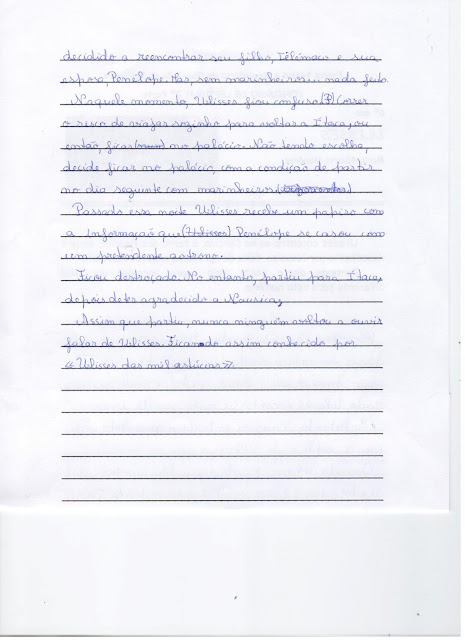 decidido a reencontrar seu filho, Telémaco e sua
esposa, Penélope. Mas, sem marinheiros... nada feito.
Naquele momento, Ulisses ficou confuso(?) Correr
o risco de viajar sozinho para voltar a Ítaca, ou
então, ficar no palácio. Não tendo escolha,
decide ficar no palácio, com a condição de partir
no dia seguinte com marinheiros
Passado essa noite Ulisses recebe um papiro com
a informação que (Ulisses) Penélope se casou com
um pretendente
Ficou destroçado. No entanto, partiu para Ítaca,
depois de ter agradecido a Nausica,
Assim que partiu, nunca ninguém voltou a ouvir
falar de Ulisses. Ficando assim conhecido por
«Ulisses das mil astúcias».